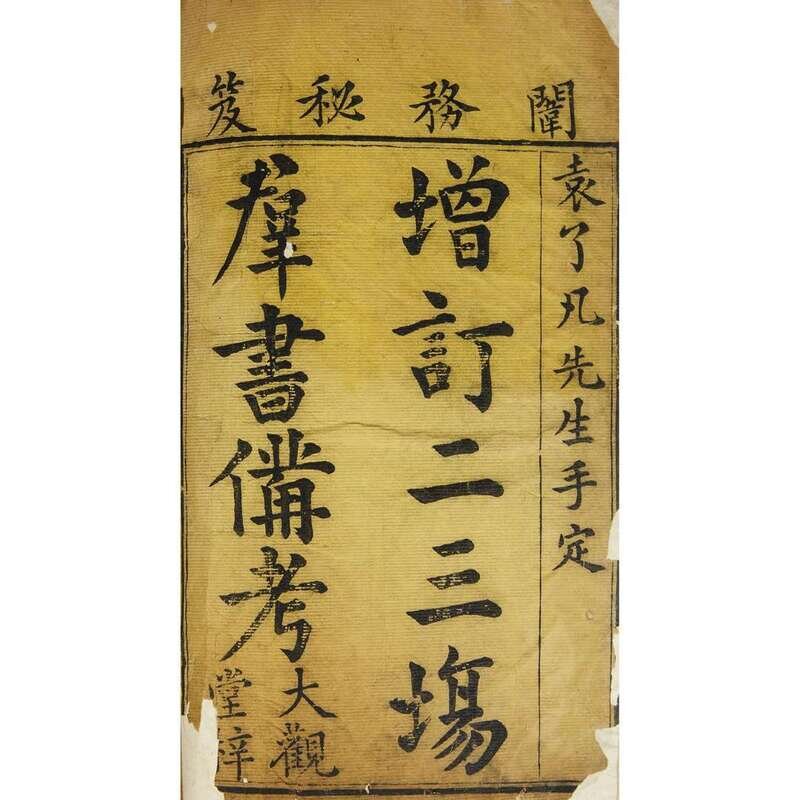 闈務秘笈
袁了凡先生手定
增訂二三塲
羣書備考
大觀
堂梓